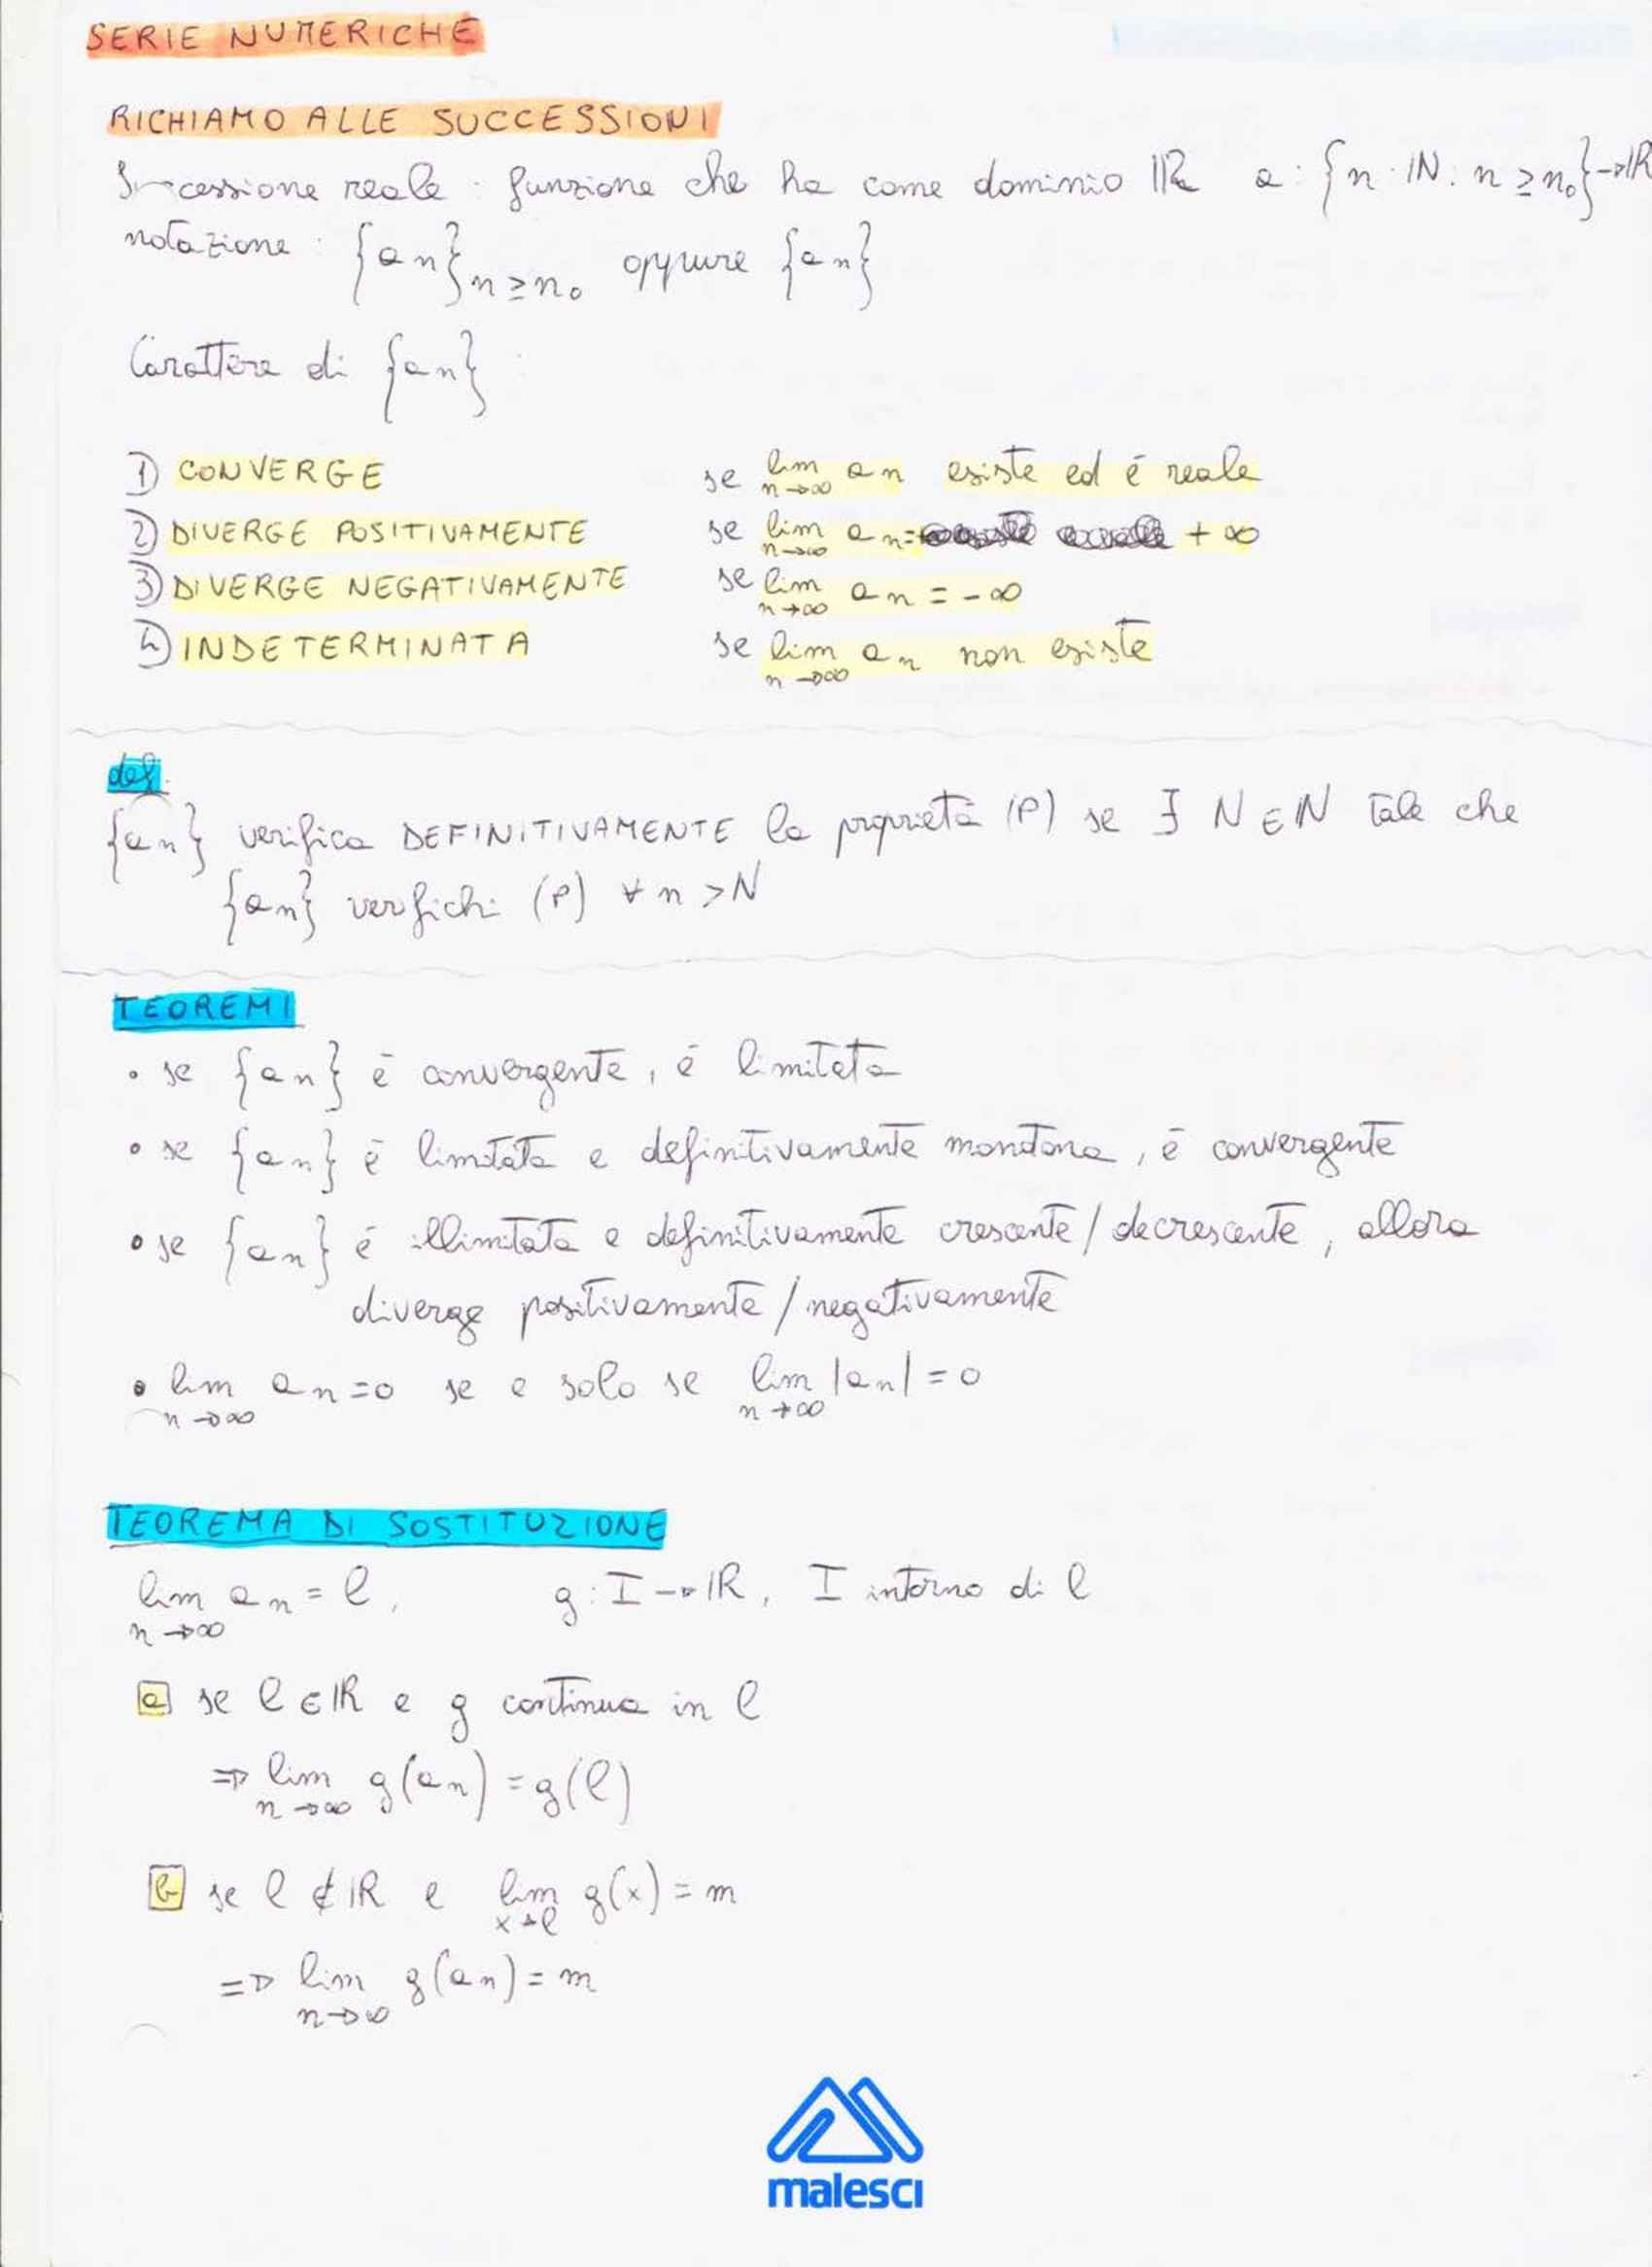 SERIE NUMERICHE
RICHIAMO ALLE SUCCESSIONI
Successione reale : funzione che ha come dominio ℝ a : {n · ℕ : n ≥ n₀} → ℝ
notazione : {an}n≥n₀ oppure {an}
Carattere di {an} :
1) CONVERGE se lim n→∞ an esiste ed è reale
2) DIVERGE POSITIVAMENTE se lim n→∞ an = +∞
3) DIVERGE NEGATIVAMENTE se lim n→∞ an = -∞
4) INDETERMINATA se lim n→∞ an non esiste
def.
{an} verifica DEFINITIVAMENTE la proprietà (P) se ∃ N ∈ ℕ tale che
{an} verfichi (P) ∀ n > N
TEOREMI
• se {an} è convergente, è limitata
• se {an} è limitata e definitivamente monotona, è convergente
• se {an} è illimitata e definitivamente crescente/decrescente, allora
diverge positivamente/negativamente
• lim n→∞ an = 0 se e solo se lim n→∞ |an| = 0
TEOREMA DI SOSTITUZIONE
lim n→∞ an = l, g : I → ℝ, I intorno di l
a se l ∈ ℝ e g continua in l
⇒ lim n→∞ g(an) = g(l)
b se l ∉ ℝ e lim x→l g(x) = m
⇒ lim n→∞ g(an) = m
malesci